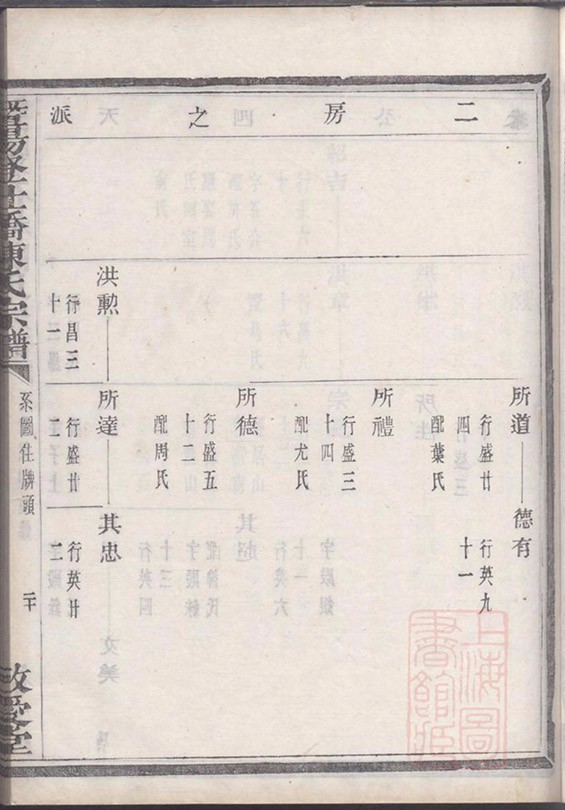 二房之派
所道
行盛廿
四
配葉氏
德有
行英九
十一
所禮
行盛三
十四
配尤氏
所德
行盛五
十二
配周氏
洪勲
行昌三
十一
所達
行盛廿
二
其忠
行英廿
二
陳氏宗譜
系圖住牌頭
二十
敬愛堂
上海圖書館藏